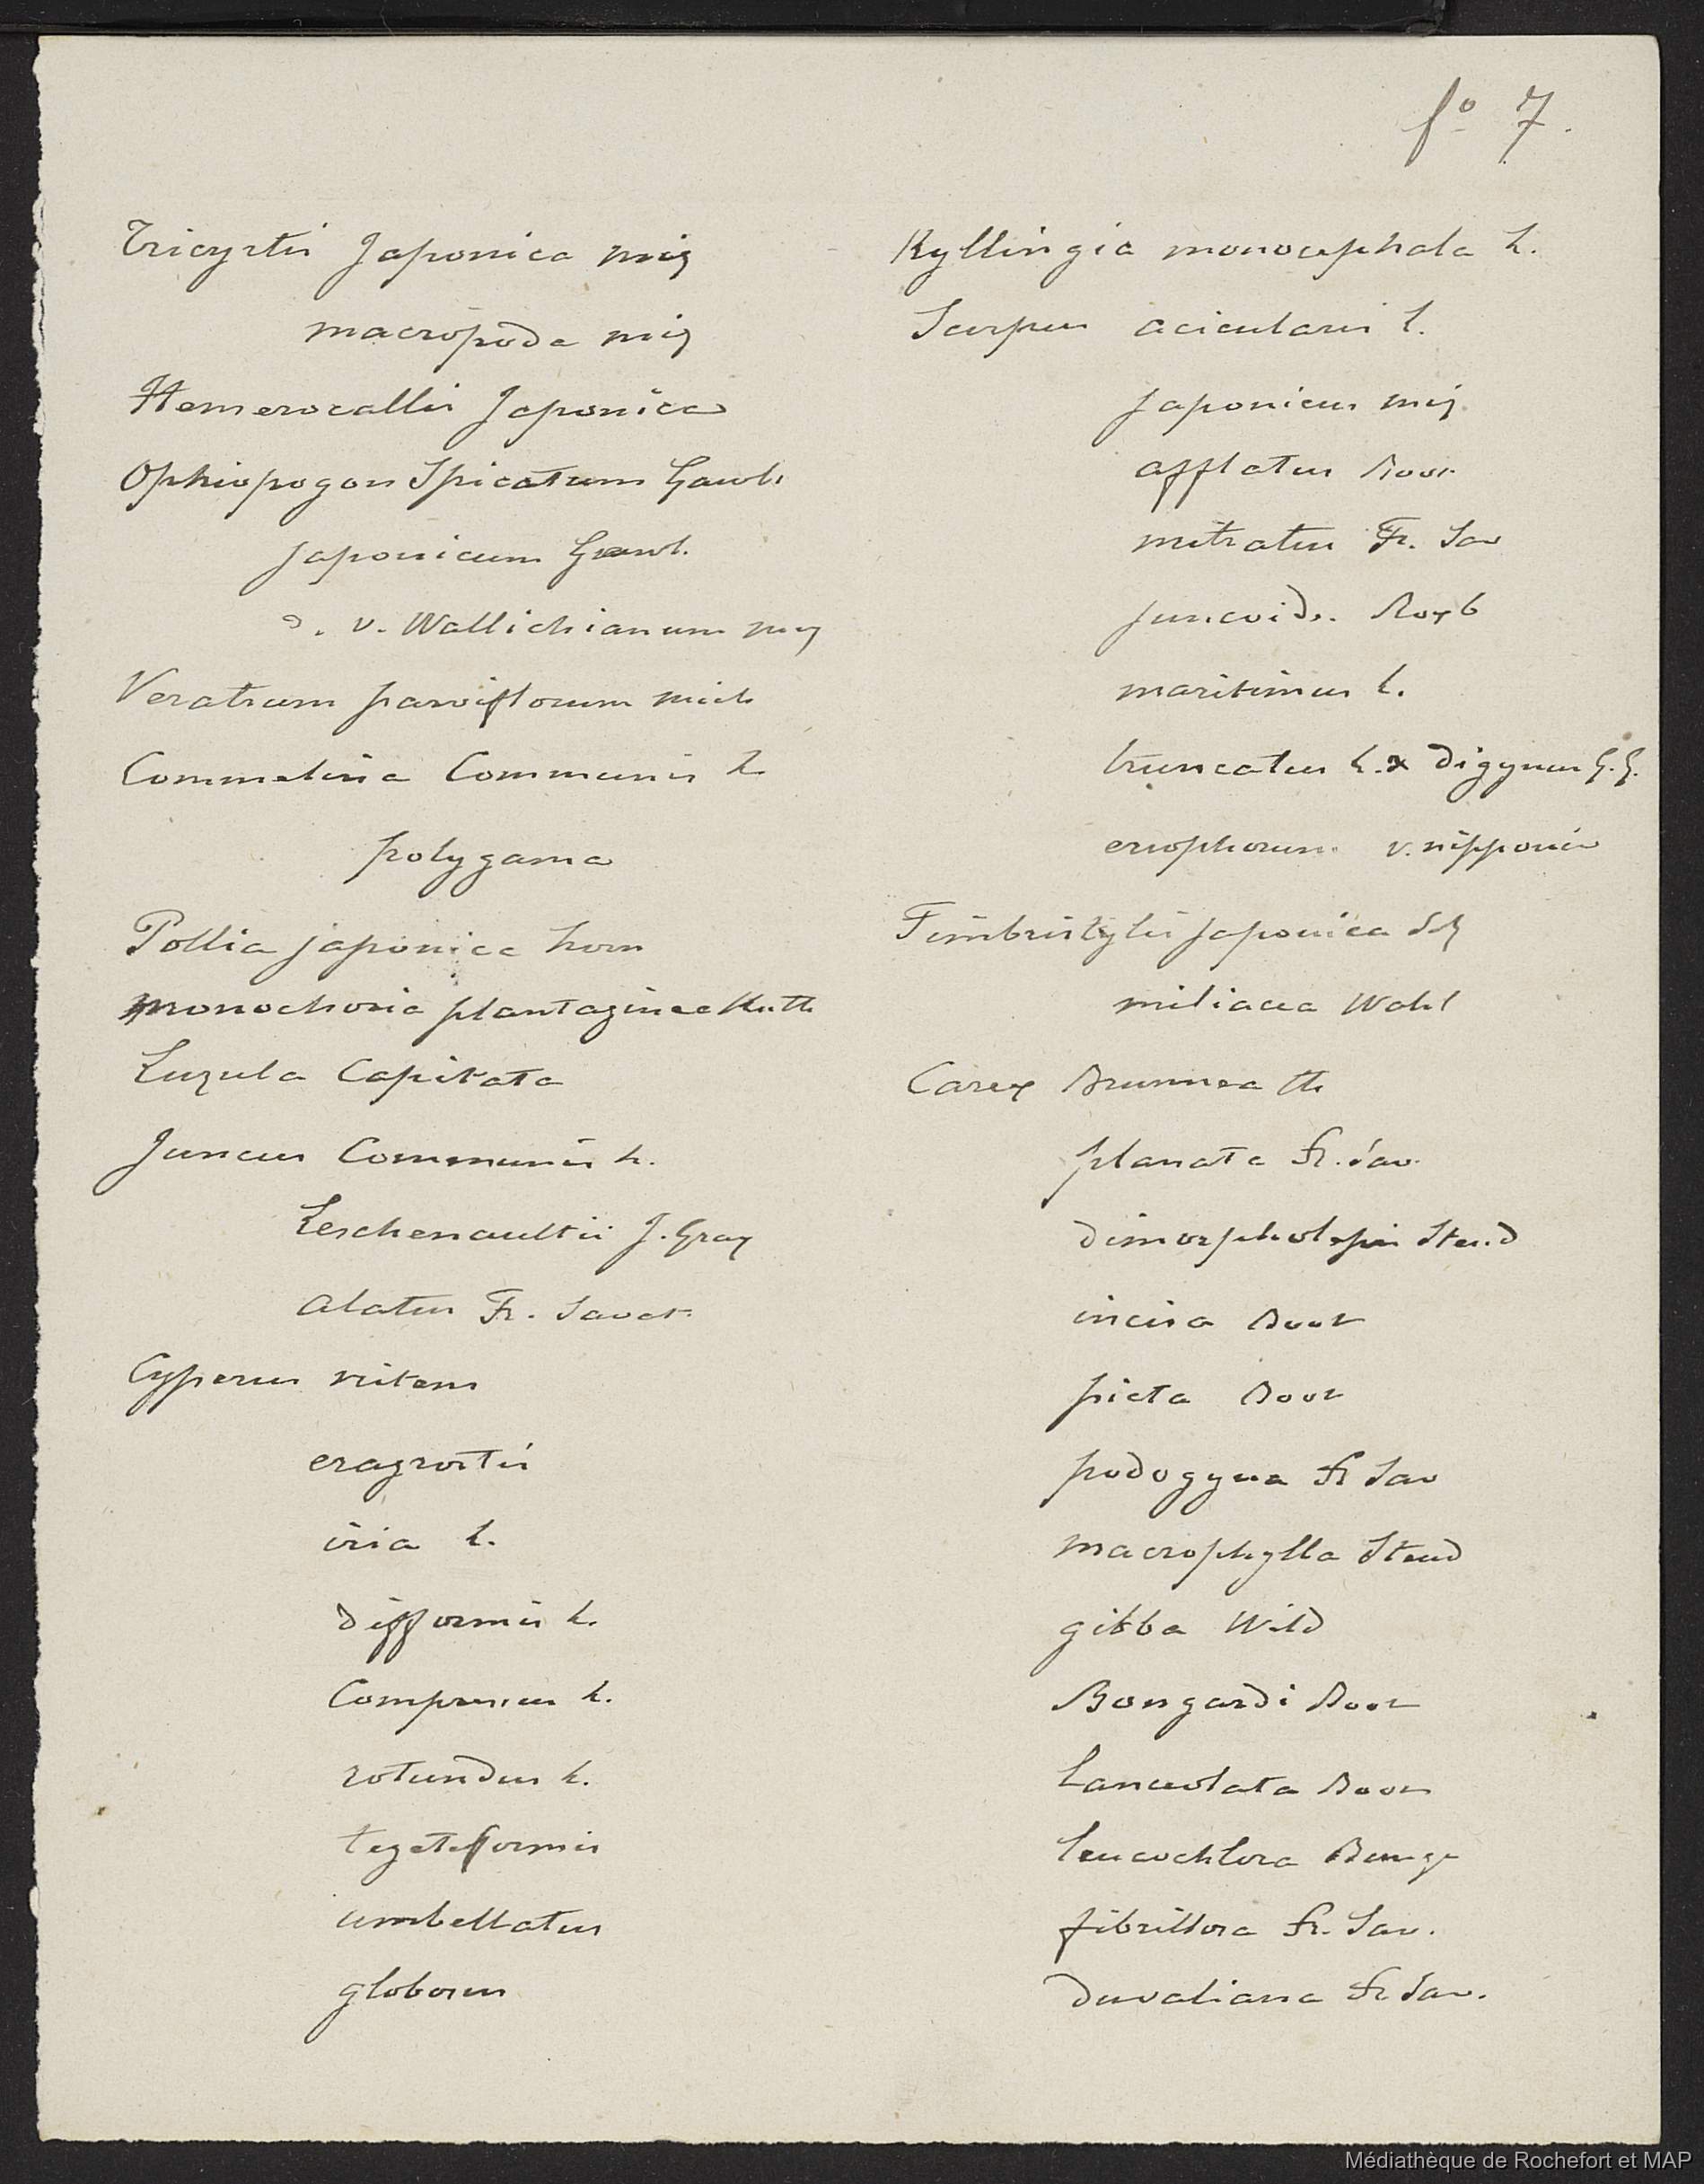 fo 7.
Tricyrtis Japonica miq
macropoda miq
Hemerocallis Japonica
Ophiopogon Spicatum Gawl.
japonicum Gawl.
d. v. Wallichianum miq
Veratrum parviflorum mich
Commelina Communis L
polygama
Pollia japonica horn
monochoria plantaginea Kuth
Luzula Capitata
Juncus Communis L.
Leschenaultii J. Gray
alatus Fr. Savat
Cyperus nitens
eragrostis
iria L.
difformis L.
Compressus L.
rotundus L.
tegetiformis
umbellatus
globosus
Kyllingia monocephala L.
Scirpus acicularis L.
japonicus miq
afflatus Boot
mitratus Fr. Sav
juncoides Roxb
maritimus L.
truncatus L. digynus G. G.
eriophorum v. nipponica
Fimbristylis japonica
miliacea Wahl
Carex Brunnea th
planata Fr. Sav.
dimorpholepis Steud
incisa Boot
picta Boot
podogyna Fr Sav
macrophylla Steud
gibba Wild
Bongardi Boot
Lanceolata Boott
leucochlora Bunge
fibrillosa Fr. Sav.
duvaliana Fr Sav.
Médiathèque de Rochefort et MAP